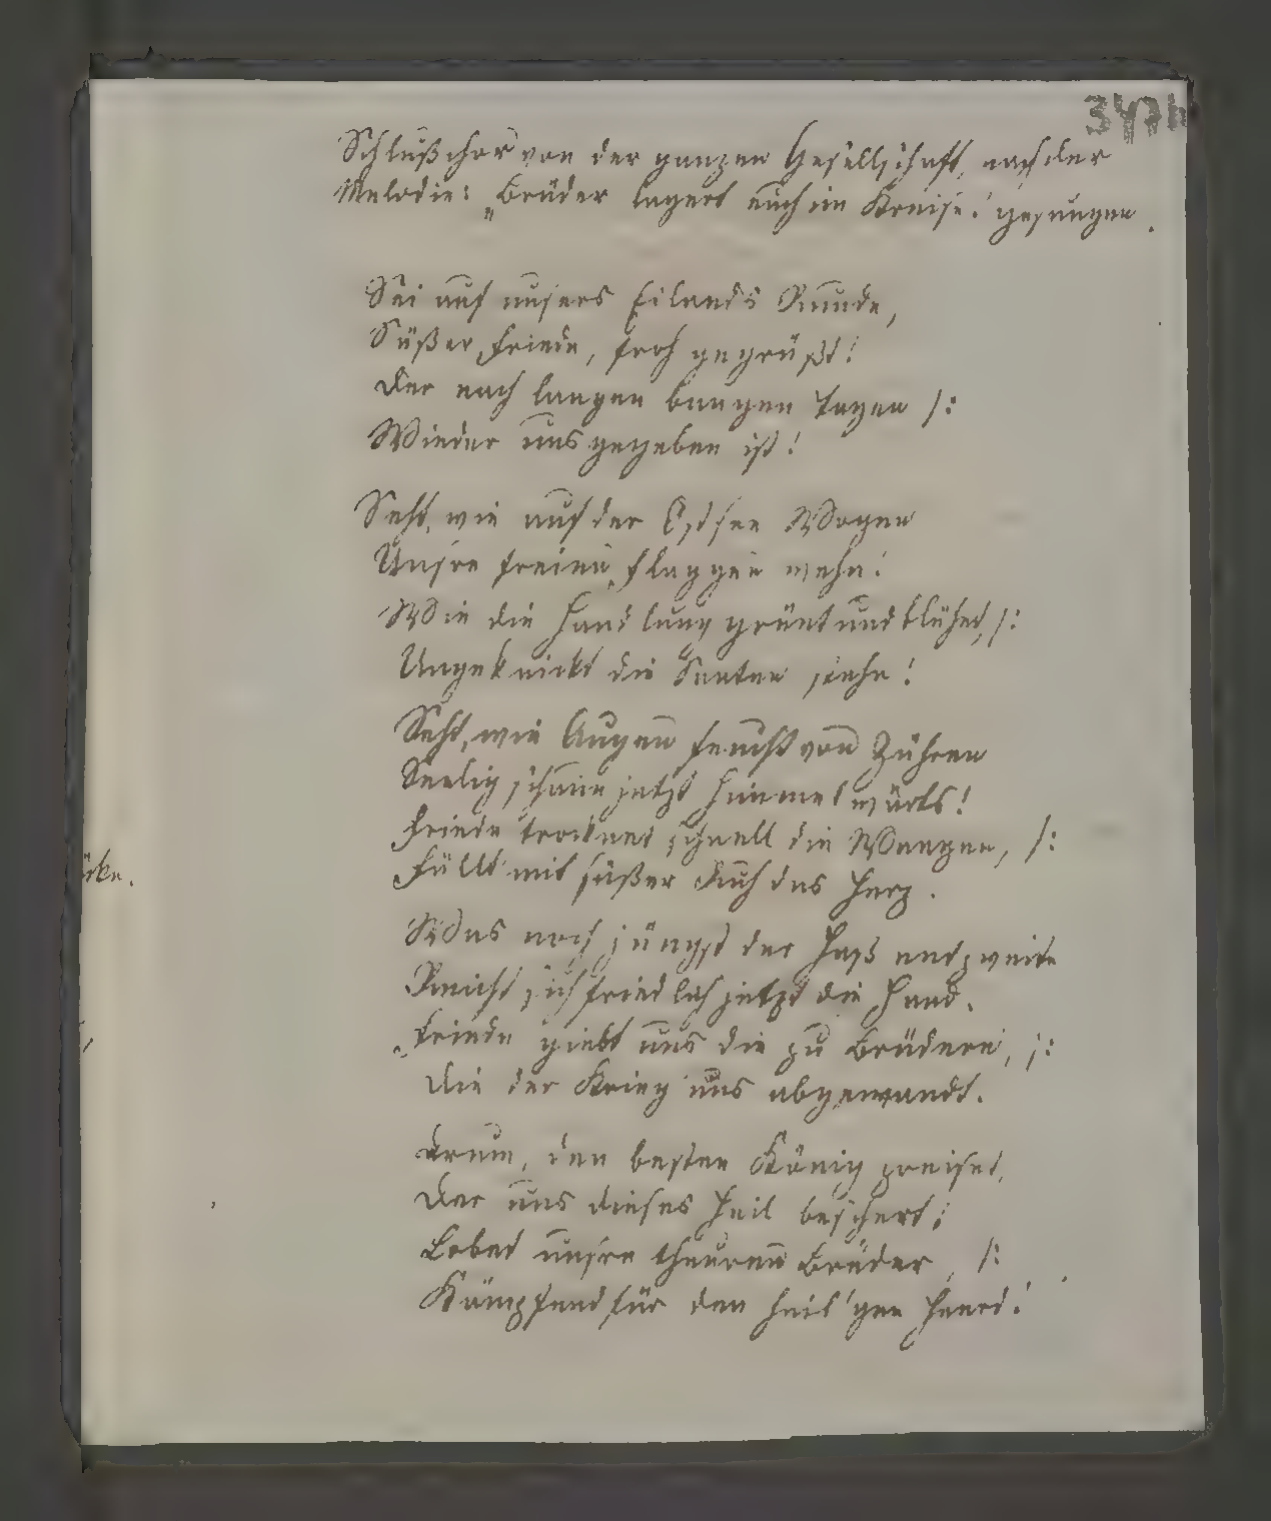 Schlußchor von der ganzen Gesellschaft, nach der
Melodie: „Brüder lagert euch im Kreise! gesungen.
Sei auf unsers Eilands Runde,
Süßer Friede, froh gegrüßt!
Der nach langen bangen Tagen /:
Wieder uns gegeben ist!
Seht, wie auf der Ostsee Wogen
Unsre freien Flaggen wehn!
Wie die Handlung grünt und blühet, /:
Ungeknickt die Saaten stehn!
Seht, wie Augen feucht von Zähren
Seelig schaun jetzt himmelwärts!
Friede trocknet schnell die Wangen, /:
Füllt mit süßer Ruh das Herz.
Was noch jüngst der Haß entzweite
Reicht sich friedlich jetzt die Hand.
Friede giebt uns die zu Brüdern, /:
Die der Krieg uns abgewandt.
Drum, den besten König preiset,
Der uns dieses Heil beschert;
Lobet unsre theuren Brüder, /:
Kämpfend für den heil'gen Heerd!